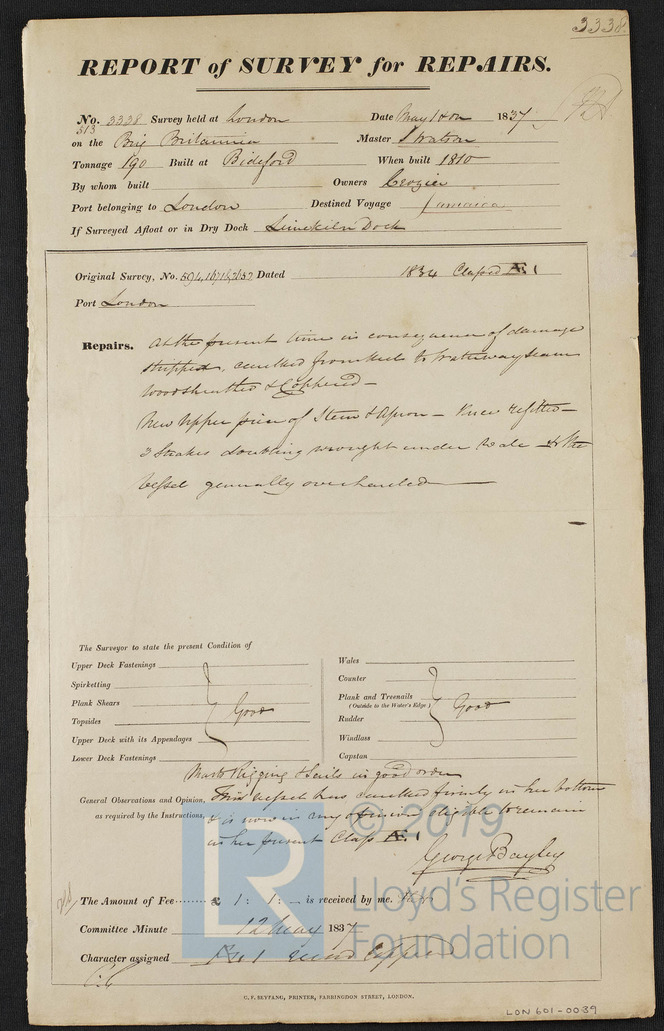 3338
REPORT of SURVEY for REPAIRS.
No. 3338 Survey held at London Date May 1837
513
on the Brig Britannia Master Watson
Tonnage 190 Built at Bideford When built 1810
By whom built Owners Crozier
Port belonging to London Destined Voyage Jamaica
If Surveyed Afloat or in Dry Dock Limekiln Dock
Original Survey, No. 594, Dated 1834 Classed Æ 1
Port London
Repairs. At the present time in consequence of damage
stripped, caulked from keel to seam
woodsheathed & Coppered —
New Upper piece of Stem & Apron — Knee refitted —
3 Strakes doubling wrought under Wale & the
Vessel generally overhauled
The Surveyor to state the present Condition of
Upper Deck Fastenings
Spirketting
Plank Shears
Topsides
Upper Deck with its Appendages
Lower Deck Fastenings
Good
Wales
Counter
Plank and Treenails
(Outside to the Water's Edge)
Rudder
Windlass
Capstan
Good
Masts Rigging & Sails in good order
General Observations and Opinion, This vessel has caulked firmly in her bottom
as required by the Instructions, & is now in my opinion eligible to remain
in her present Class Æ 1
George Bayley
The Amount of Fee £ 1 : 1 : — is received by me.
Committee Minute 12 May 1837
Character assigned Æ 1
U. F. SEYFANG, PRINTER, FARRINGDON STREET, LONDON.
LON601-0039
© 2019
LR
Lloyd's Register
Foundation